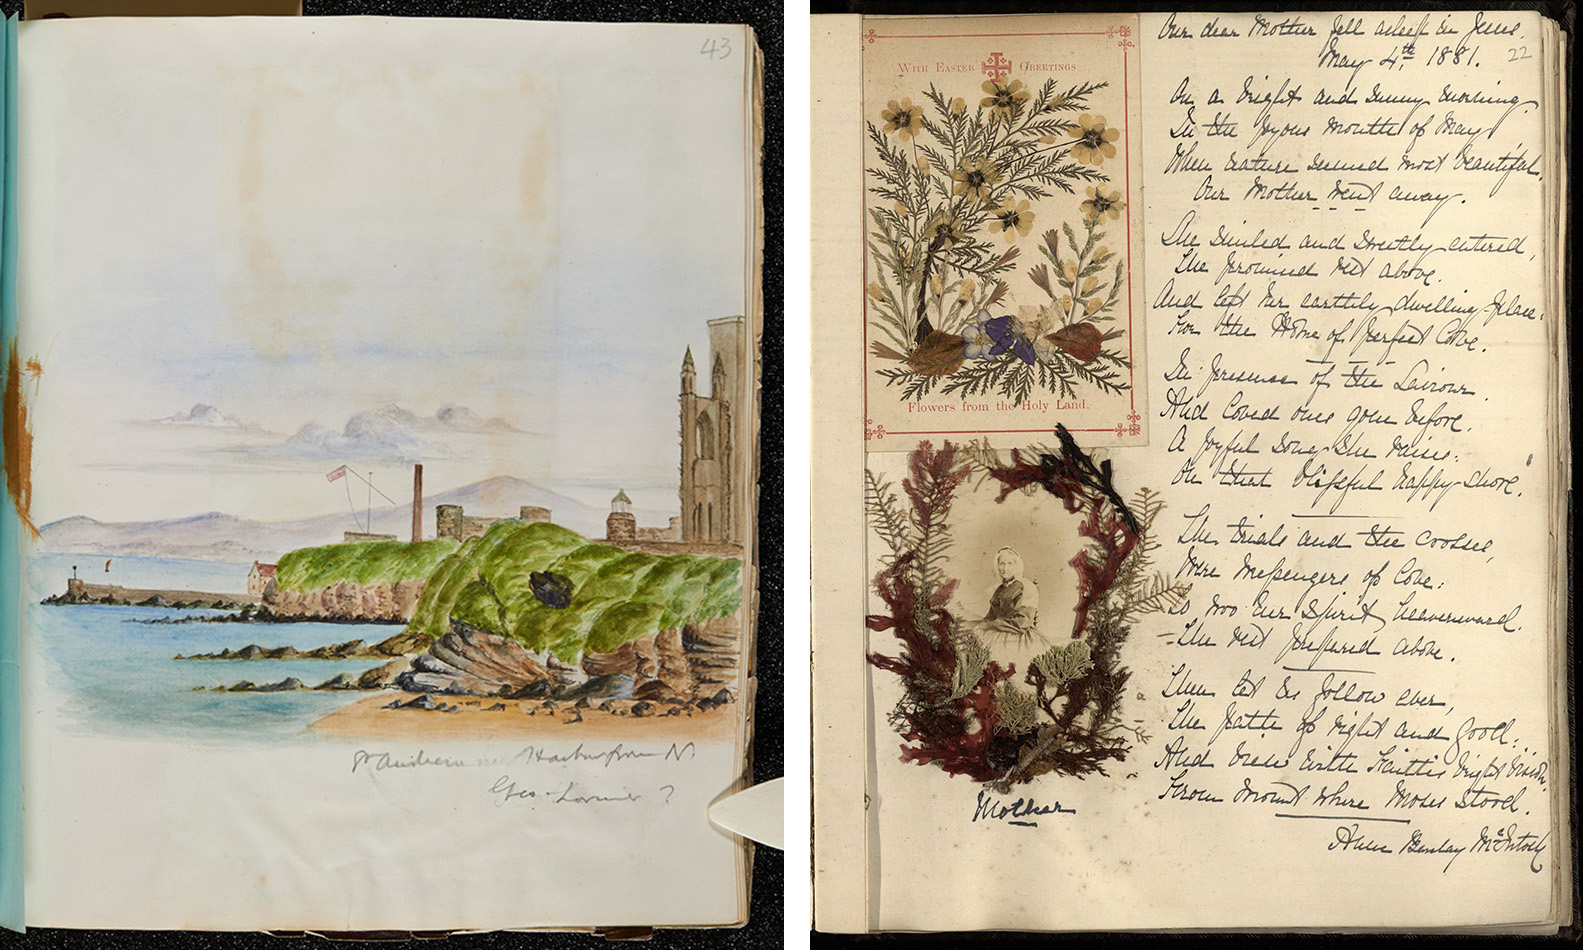 43
St Andrews Harbour from N.
Geo. Lorimer ?
WITH EASTER GREETINGS
Flowers from the Holy Land.
Mother
Our dear Mother fell asleep in Jesus.
May 4th 1881.
22
On a bright and sunny morning
In the joyous month of May
When nature seemed most beautiful,
Our Mother went away.
She smiled and sweetly entered,
The promised rest above.
And left her earthly dwelling-place.
For the Home of perfect Love.
In presence of the Saviour.
And loved ones gone before.
A joyful song she raises.
On that blissful happy shore.
The trials and the crosses,
Were Messengers of Love.
to woo her spirit heavenward.
The rest prepared above.
Then let us follow ever,
The path of right and good.
And view with Faith's bright vision.
From Mount where Moses stood.
McIntosh